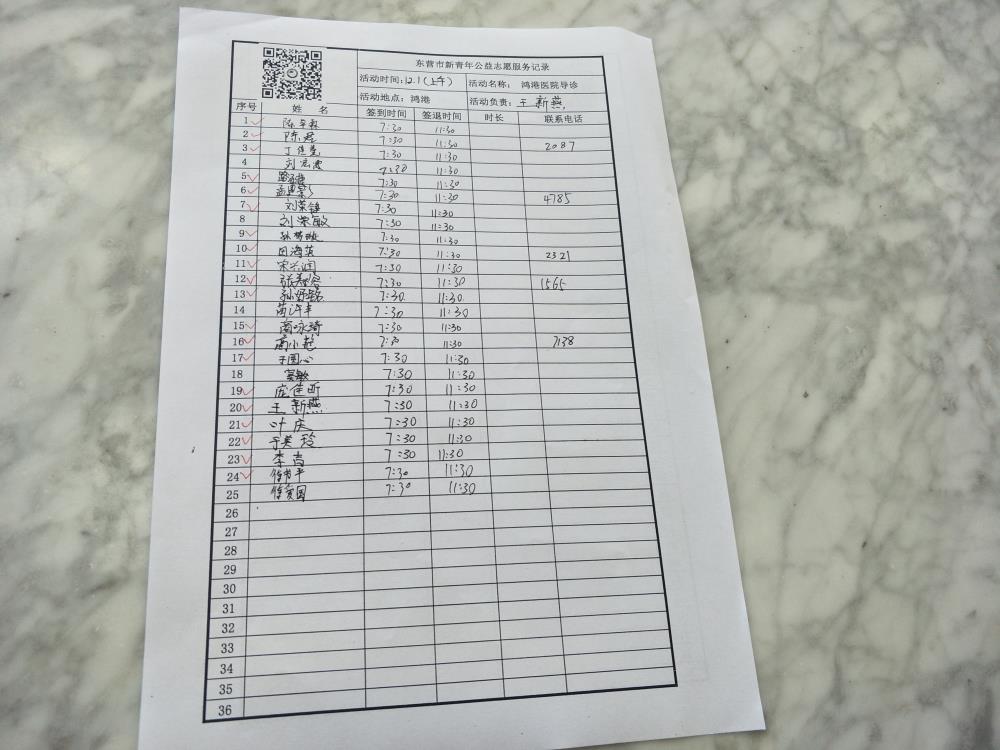 东营市新青年公益志愿服务记录
活动时间：12.1（上午） 活动名称： 鸿港医院导诊
活动地点：鸿港 活动负责：王新燕
序号 姓 名 签到时间 签退时间 时长 联系电话
1 7:30 11:30
2 陈君 7:30 11:30 2087
3 7:30 11:30
4 7:30 11:30
5 7:30 11:30
6 7:30 11:30 4785
7 刘荣锋 7:30 11:30
8 刘荣敏 7:30 11:30
9 7:30 11:30
10 田海英 7:30 11:30 2321
11 宋兴润 7:30 11:30
12 7:30 11:30 1565
13 7:30 11:30
14 苗许丰 7:30 11:30
15 商咏琦 7:30 11:30
16 7:30 11:30 7138
17 7:30 11:30
18 7:30 11:30
19 庞佳昕 7:30 11:30
20 王新燕 7:30 11:30
21 叶庆 7:30 11:30
22 于美玲 7:30 11:30
23 李尚 7:30 11:30
24 7:30 11:30
25 7:30 11:30
26
27
28
29
30
31
32
33
34
35
36